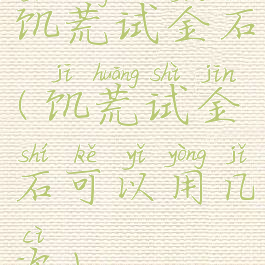 饥荒试金石
jī huāng shì jīn
(饥荒试金
shí kě yǐ yòng jǐ
石可以用几
cì
次)